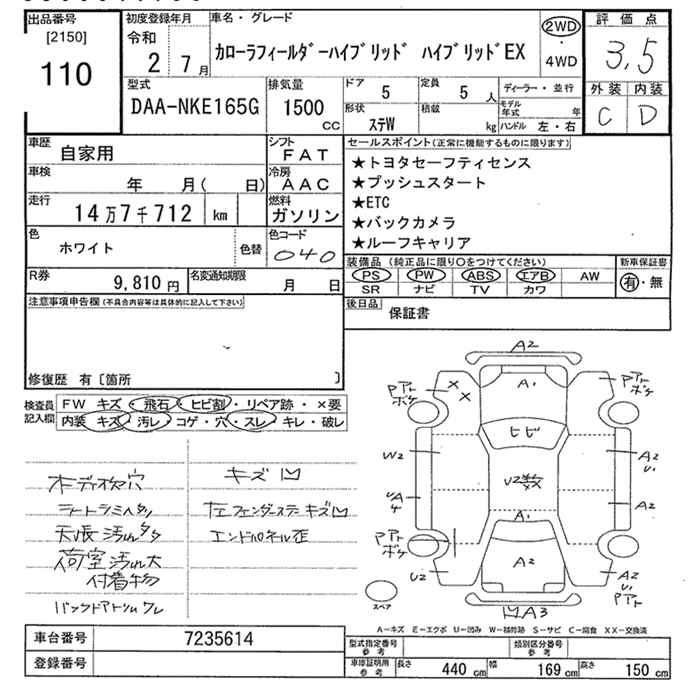 出品番号
[2150]
110
初度登録年月
令和
2 7月
車名・グレード
カローラフィールダーハイブリッド ハイブリッドEX
2WD
・
4WD
評価点
3,5
外装 内装
C D
型式
DAA-NKE165G
排気量
1500
CC
ドア
5
定員
5 人
形状
ステW
積載
kg
ディーラー・並行
モデル年式 年
ハンドル 左・右
車歴
自家用
シフト
FAT
車検
年 月( 日)
冷房
AAC
走行
14万7千712 km
燃料
ガソリン
色
ホワイト
色替
色コード
040
R券
9,810 円
名変通知期限
月 日
セールスポイント(正常に機能するものに限ります)
★トヨタセーフティセンス
★プッシュスタート
★ETC
★バックカメラ
★ルーフキャリア
装備品 (純正品に限り○をつけてください)
PS PW ABS エアB AW
SR ナビ TV カワ
新車保証書
有・無
後日品
保証書
注意事項申告欄(不具合内容等は具体的に記入して下さい)
修復歴 有〔箇所 〕
検査員記入欄
FW キズ・飛石・ヒビ割・リペア跡・×要
内装 キズ・汚レ・コゲ・穴・スレ・キレ・破レ
ボディ欠穴
シートシミヘタリ
天張汚レ多々
荷室汚れ大
付着物
バックドアトリムワレ
キズ凹
左フェンダーステーキズ凹
エンドパネル歪
A2
A1
Pアト
ボケ
X
X
Pアト
ボケ
ヒビ
W2
A2
U1
U2数
UA
4
A2
Pアト
ボケ
A1
A2
U2
A2
U1
Pアト
スペア
凹A3
A−キズ E−エクボ U−凹み W−補修跡 S−サビ C−腐食 XX−交換済
車台番号
7235614
登録番号
型式指定番号
参考
類別区分番号
参考
車庫証明用
参考
長さ 440 cm
幅 169 cm
高さ 150 cm